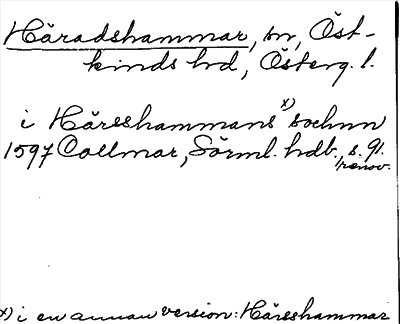 Häradshammar, sn, Öst-
kinds hd, Österg. l.
i Härsshammans x) sochnn
1597 Collmar, Sörml. hdb. s. 91.
1/renov.
x) i en annan version: Häresshammar